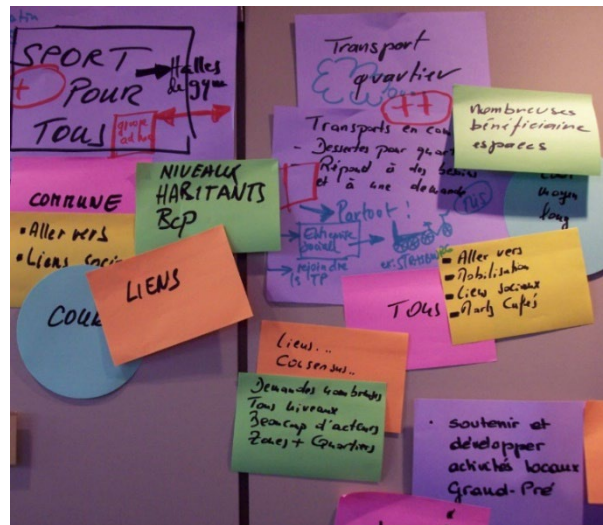 SPORT
+ POUR
TOUS
Halles
de gym
groupe
ad hoc
COMMUNE
• Aller vers
• Liens
NIVEAUX
HABITANTS
BCP
LIENS
Transport
quartier
++
Transports en
- Dessertes pour
Répond à des besoins
et à une demande
Partout !
TUS
Entreprise
sociale
rejoindre
le TP
ex: STRASBOURG
nombreuses
bénéficiaire
espaces
moyen
long
- Aller vers
- Mobilisation
- Liens sociaux
- Mardi Cafés
TOUS
Liens..
Consensus..
Demandes nombreuses
Tous niveaux
Beaucoup d'acteurs
Zones + Quartiers
• soutenir et
développer
activités locaux
Grand-Pré